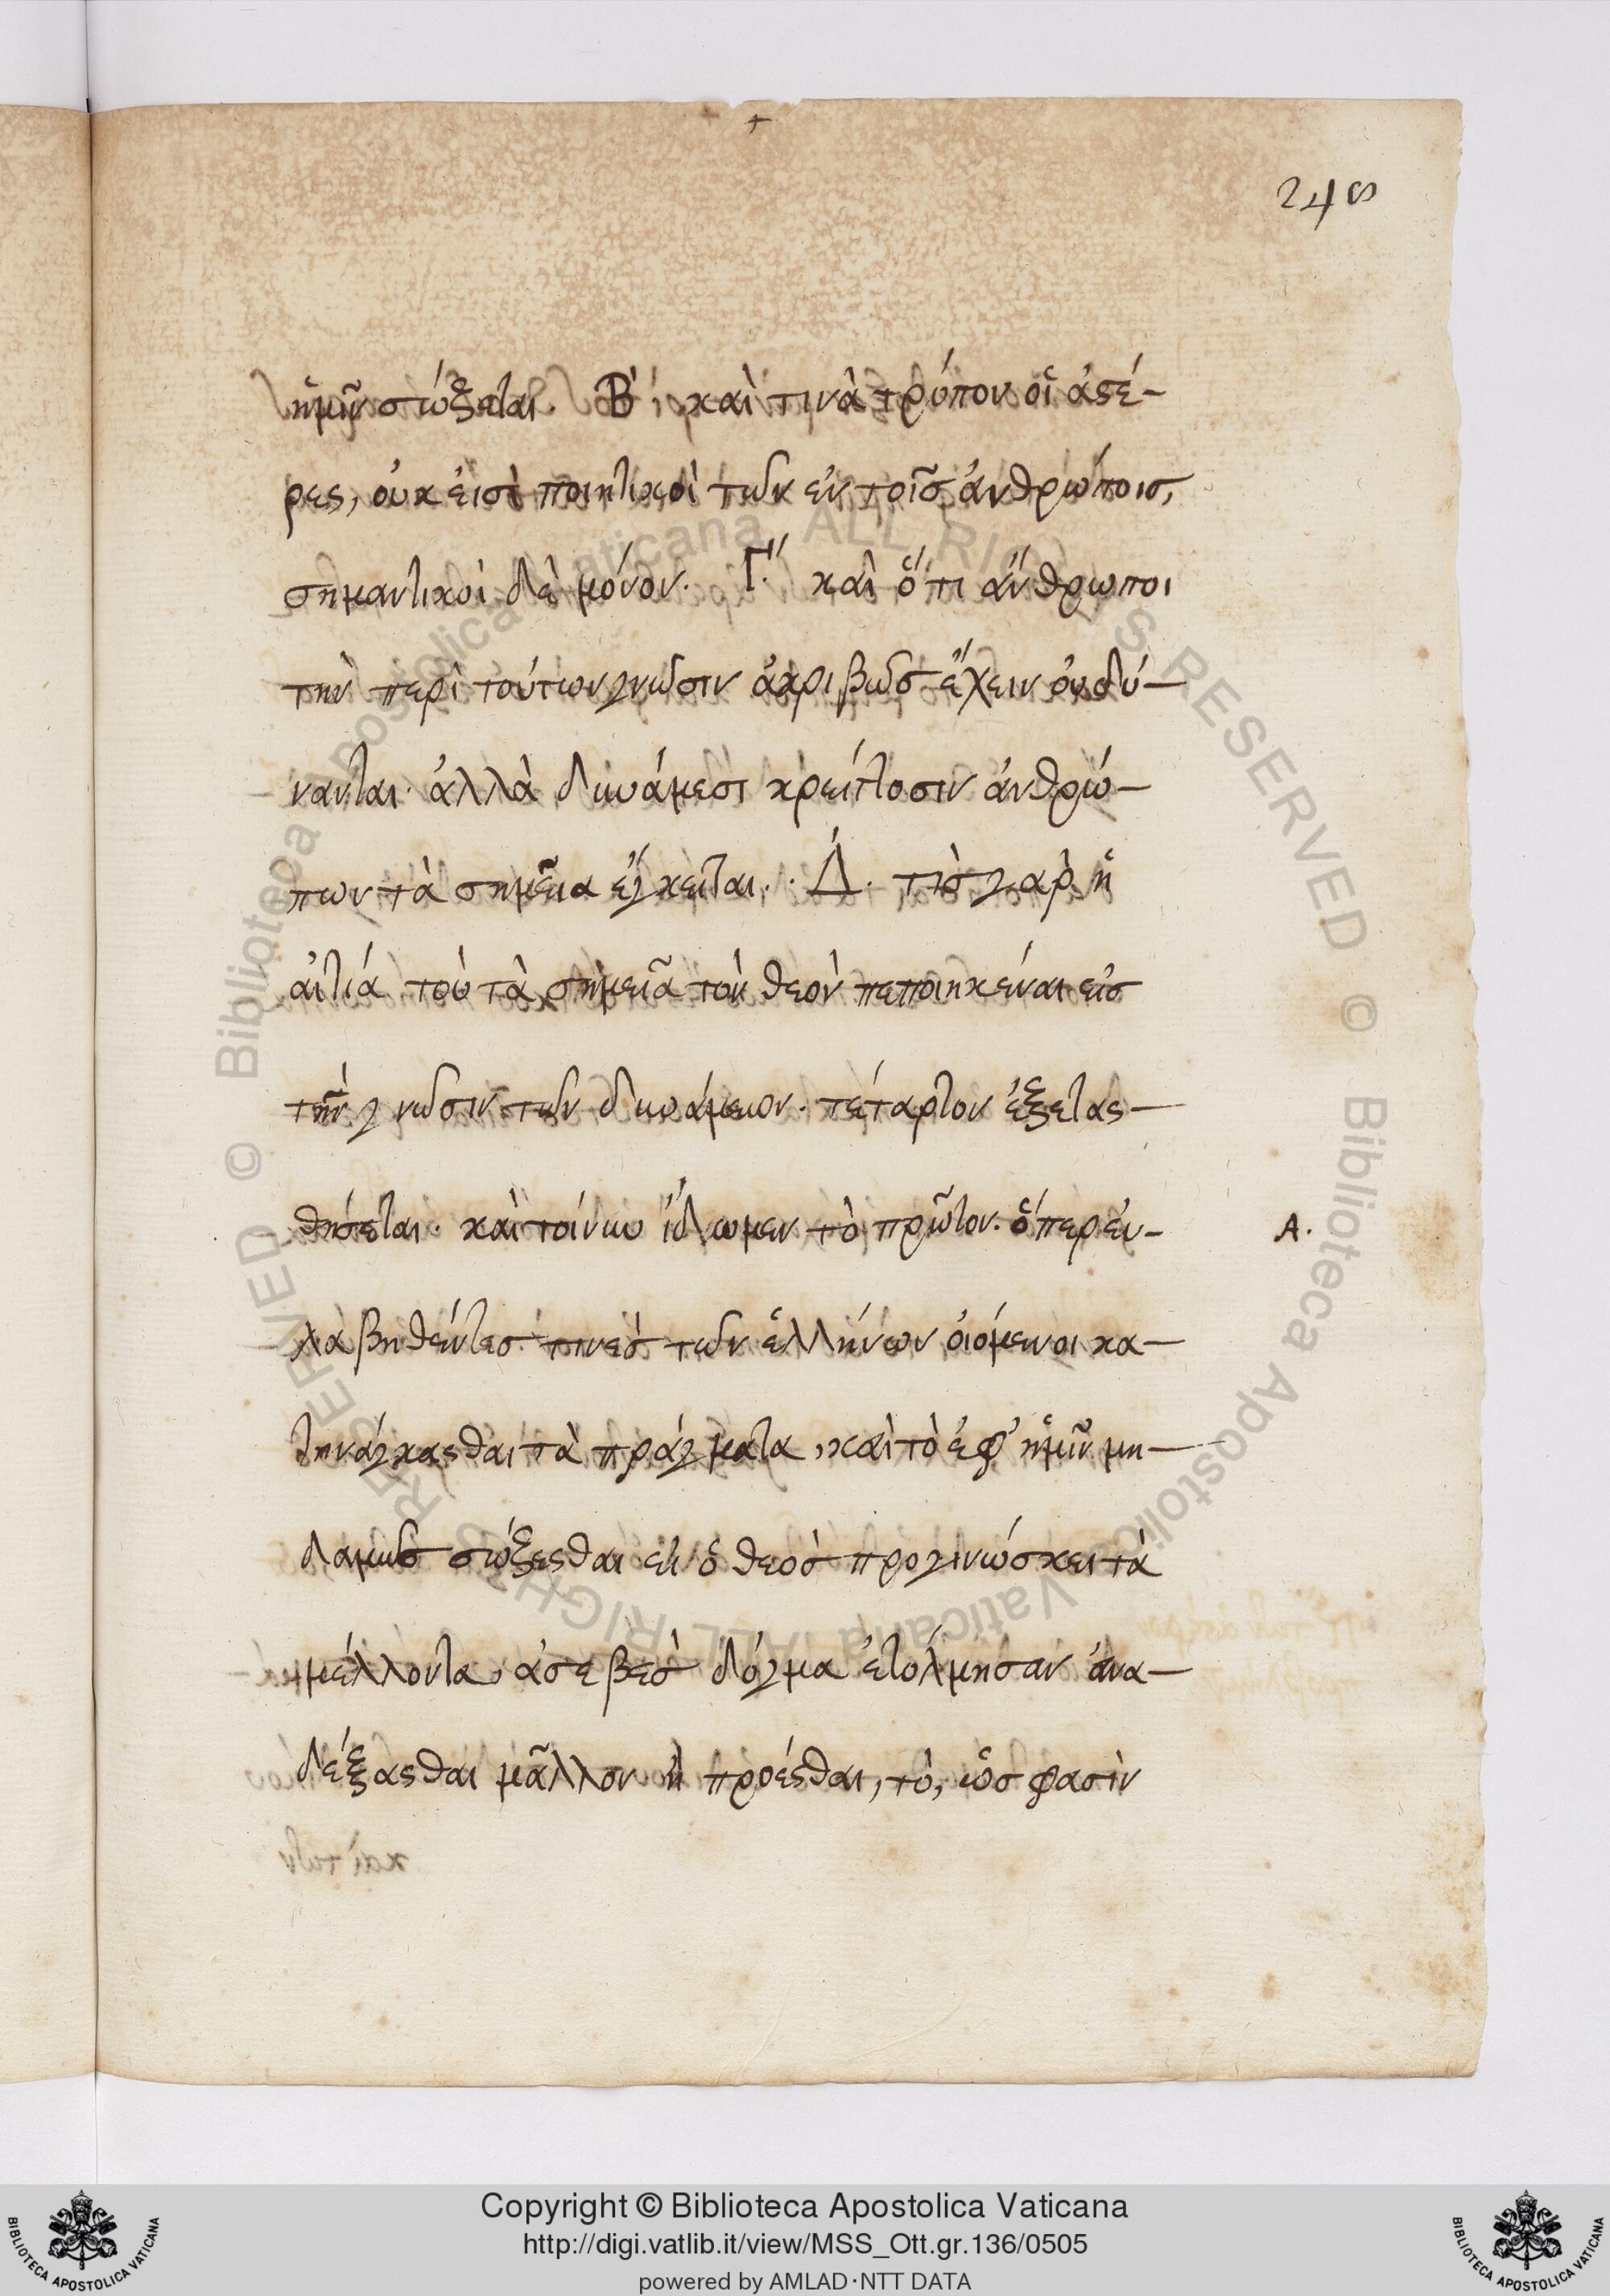 248
ἡμῖν σώζεται. Β΄ καὶ τινὰ τρόπον οἱ ἀστέ-
ρες, οὐκ εἰσὶ ποιητικοὶ τῶν ἐν τοῖς ἀνθρώποις,
σημαντικοὶ δὲ μόνον. Γ΄ καὶ ὅτι ἄνθρωποι
τὴν περὶ τούτων γνῶσιν ἀκριβῶς ἔχειν οὐ δύ-
νανται. ἀλλὰ δυνάμεσι κρείττοσιν ἀνθρώ-
πων τὰ σημεῖα ἔγκειται. Δ΄. τὶς γὰρ ἡ
αἰτία τοῦ τὰ σημεῖα τὸν θεὸν πεποιηκέναι εἰς
τὴν γνῶσιν τῶν δυνάμεων. τέταρτον ἐξετασ-
θήσεται. καὶ τοίνυν ἴδωμεν τὸ πρῶτον. ὅπερ εὐ-
Α.
λαβηθέντες τινὲς τῶν ἑλλήνων οἰόμενοι κα-
τηνάγκασθαι τὰ πράγματα, καὶ τὸ ἐφ' ἡμῖν μη-
δαμῶς σώζεσθαι εἰ ὁ θεὸς προγινώσκει τὰ
μέλλοντα, ἀσεβὲς δόγμα ἐτόλμησαν ἀνα-
δέξασθαι μᾶλλον ἢ προέσθαι, τὸ, ὥς φασὶν
Copyright © Biblioteca Apostolica Vaticana
http://digi.vatlib.it/view/MSS_Ott.gr.136/0505
powered by AMLAD·NTT DATA
BIBLIOTECA APOSTOLICA VATICANA
BIBLIOTECA APOSTOLICA VATICANA
© Biblioteca Apostolica Vaticana ALL RIGHTS RESERVED © Biblioteca Apostolica Vaticana ALL RIGHTS RESERVED